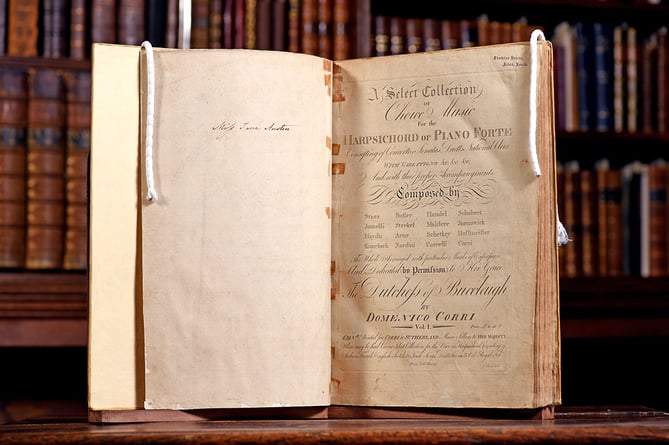 Miss Jane Austen
A Select Collection
OF
Choice Music
For the
HARPSICHORD or PIANO FORTE
Consisting of Concertos Sonatas Duetts National Airs
WITH VARIATIONS &c. &c. &c.
And with their proper Accompanyments
Composed by
Staes Butler Handel Schubert
Jomelli Sterkel Jarnowick
Haydn Arne Schetky Hoffmeister
Nardini Correlli Corri
The Whole Arranged with particular Marks of Expression
And Dedicated by Permission to Her Grace
The Dutchess of Buccleugh
BY
DOMENICO CORRI
Vol: I.
Printed for CORRI & SUTHERLAND Music Sellers to HER MAJESTY